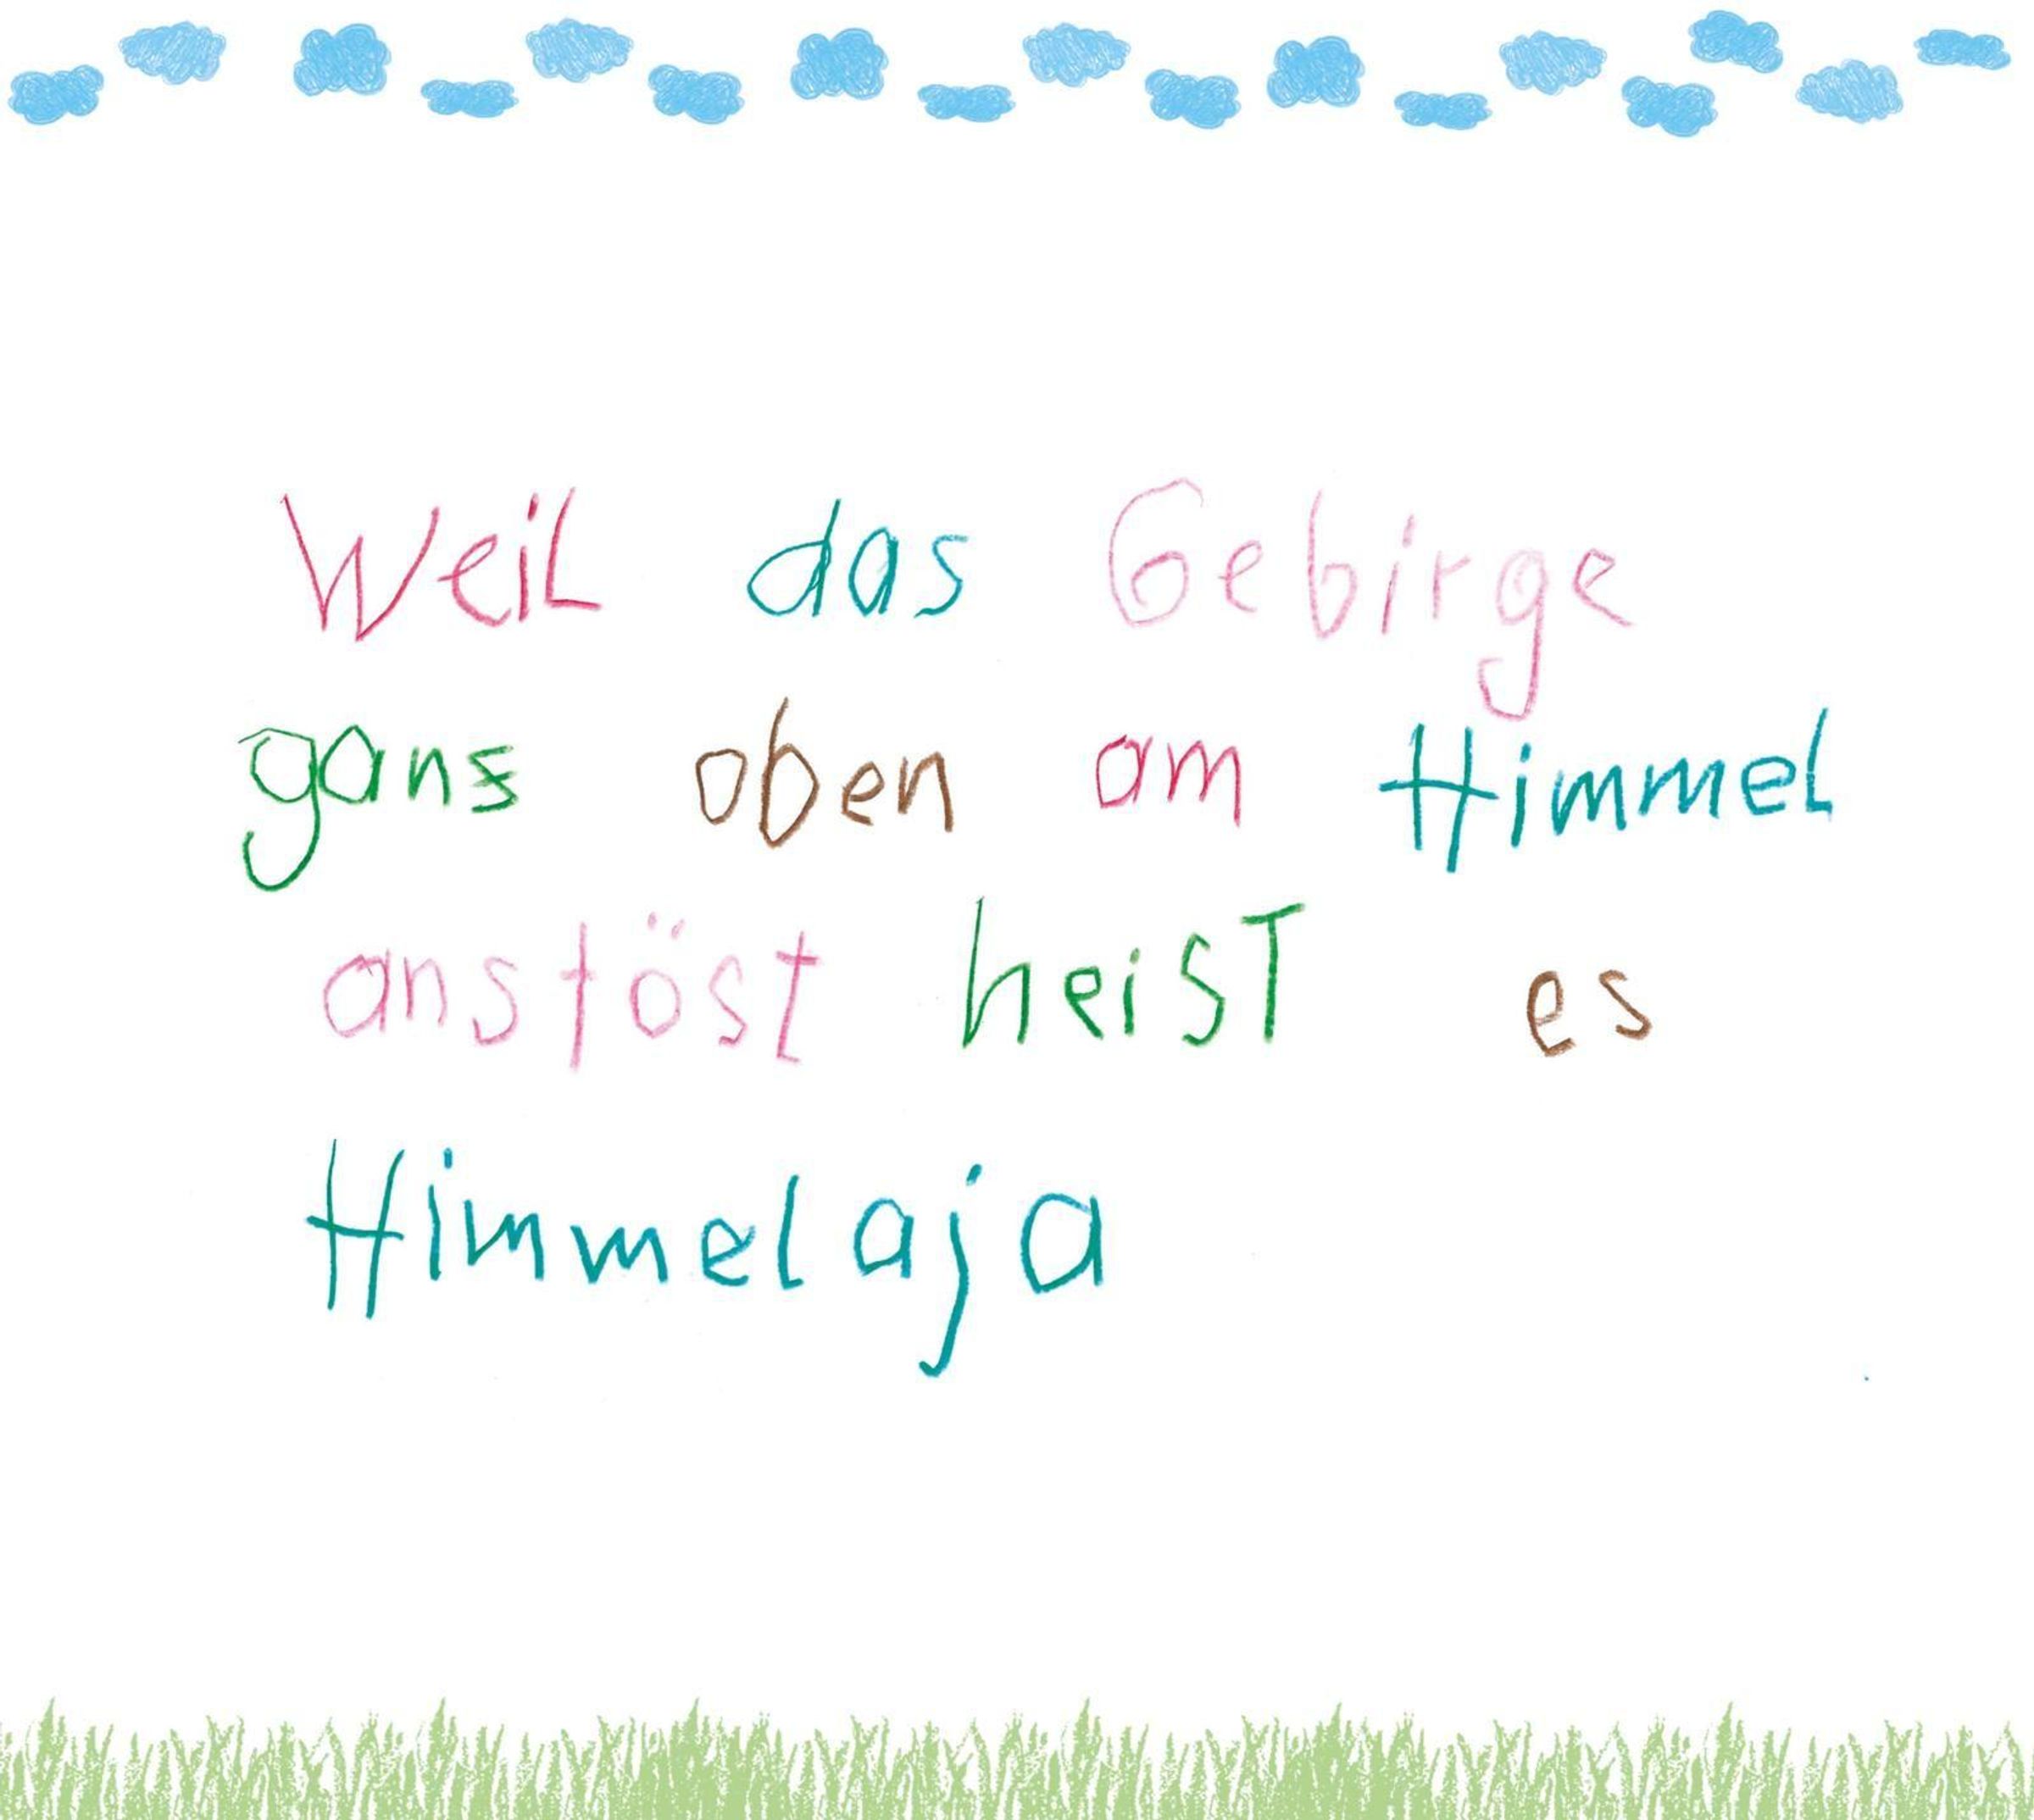 Weil das Gebirge
ganz oben am Himmel
anstöst heist es
Himmelaja